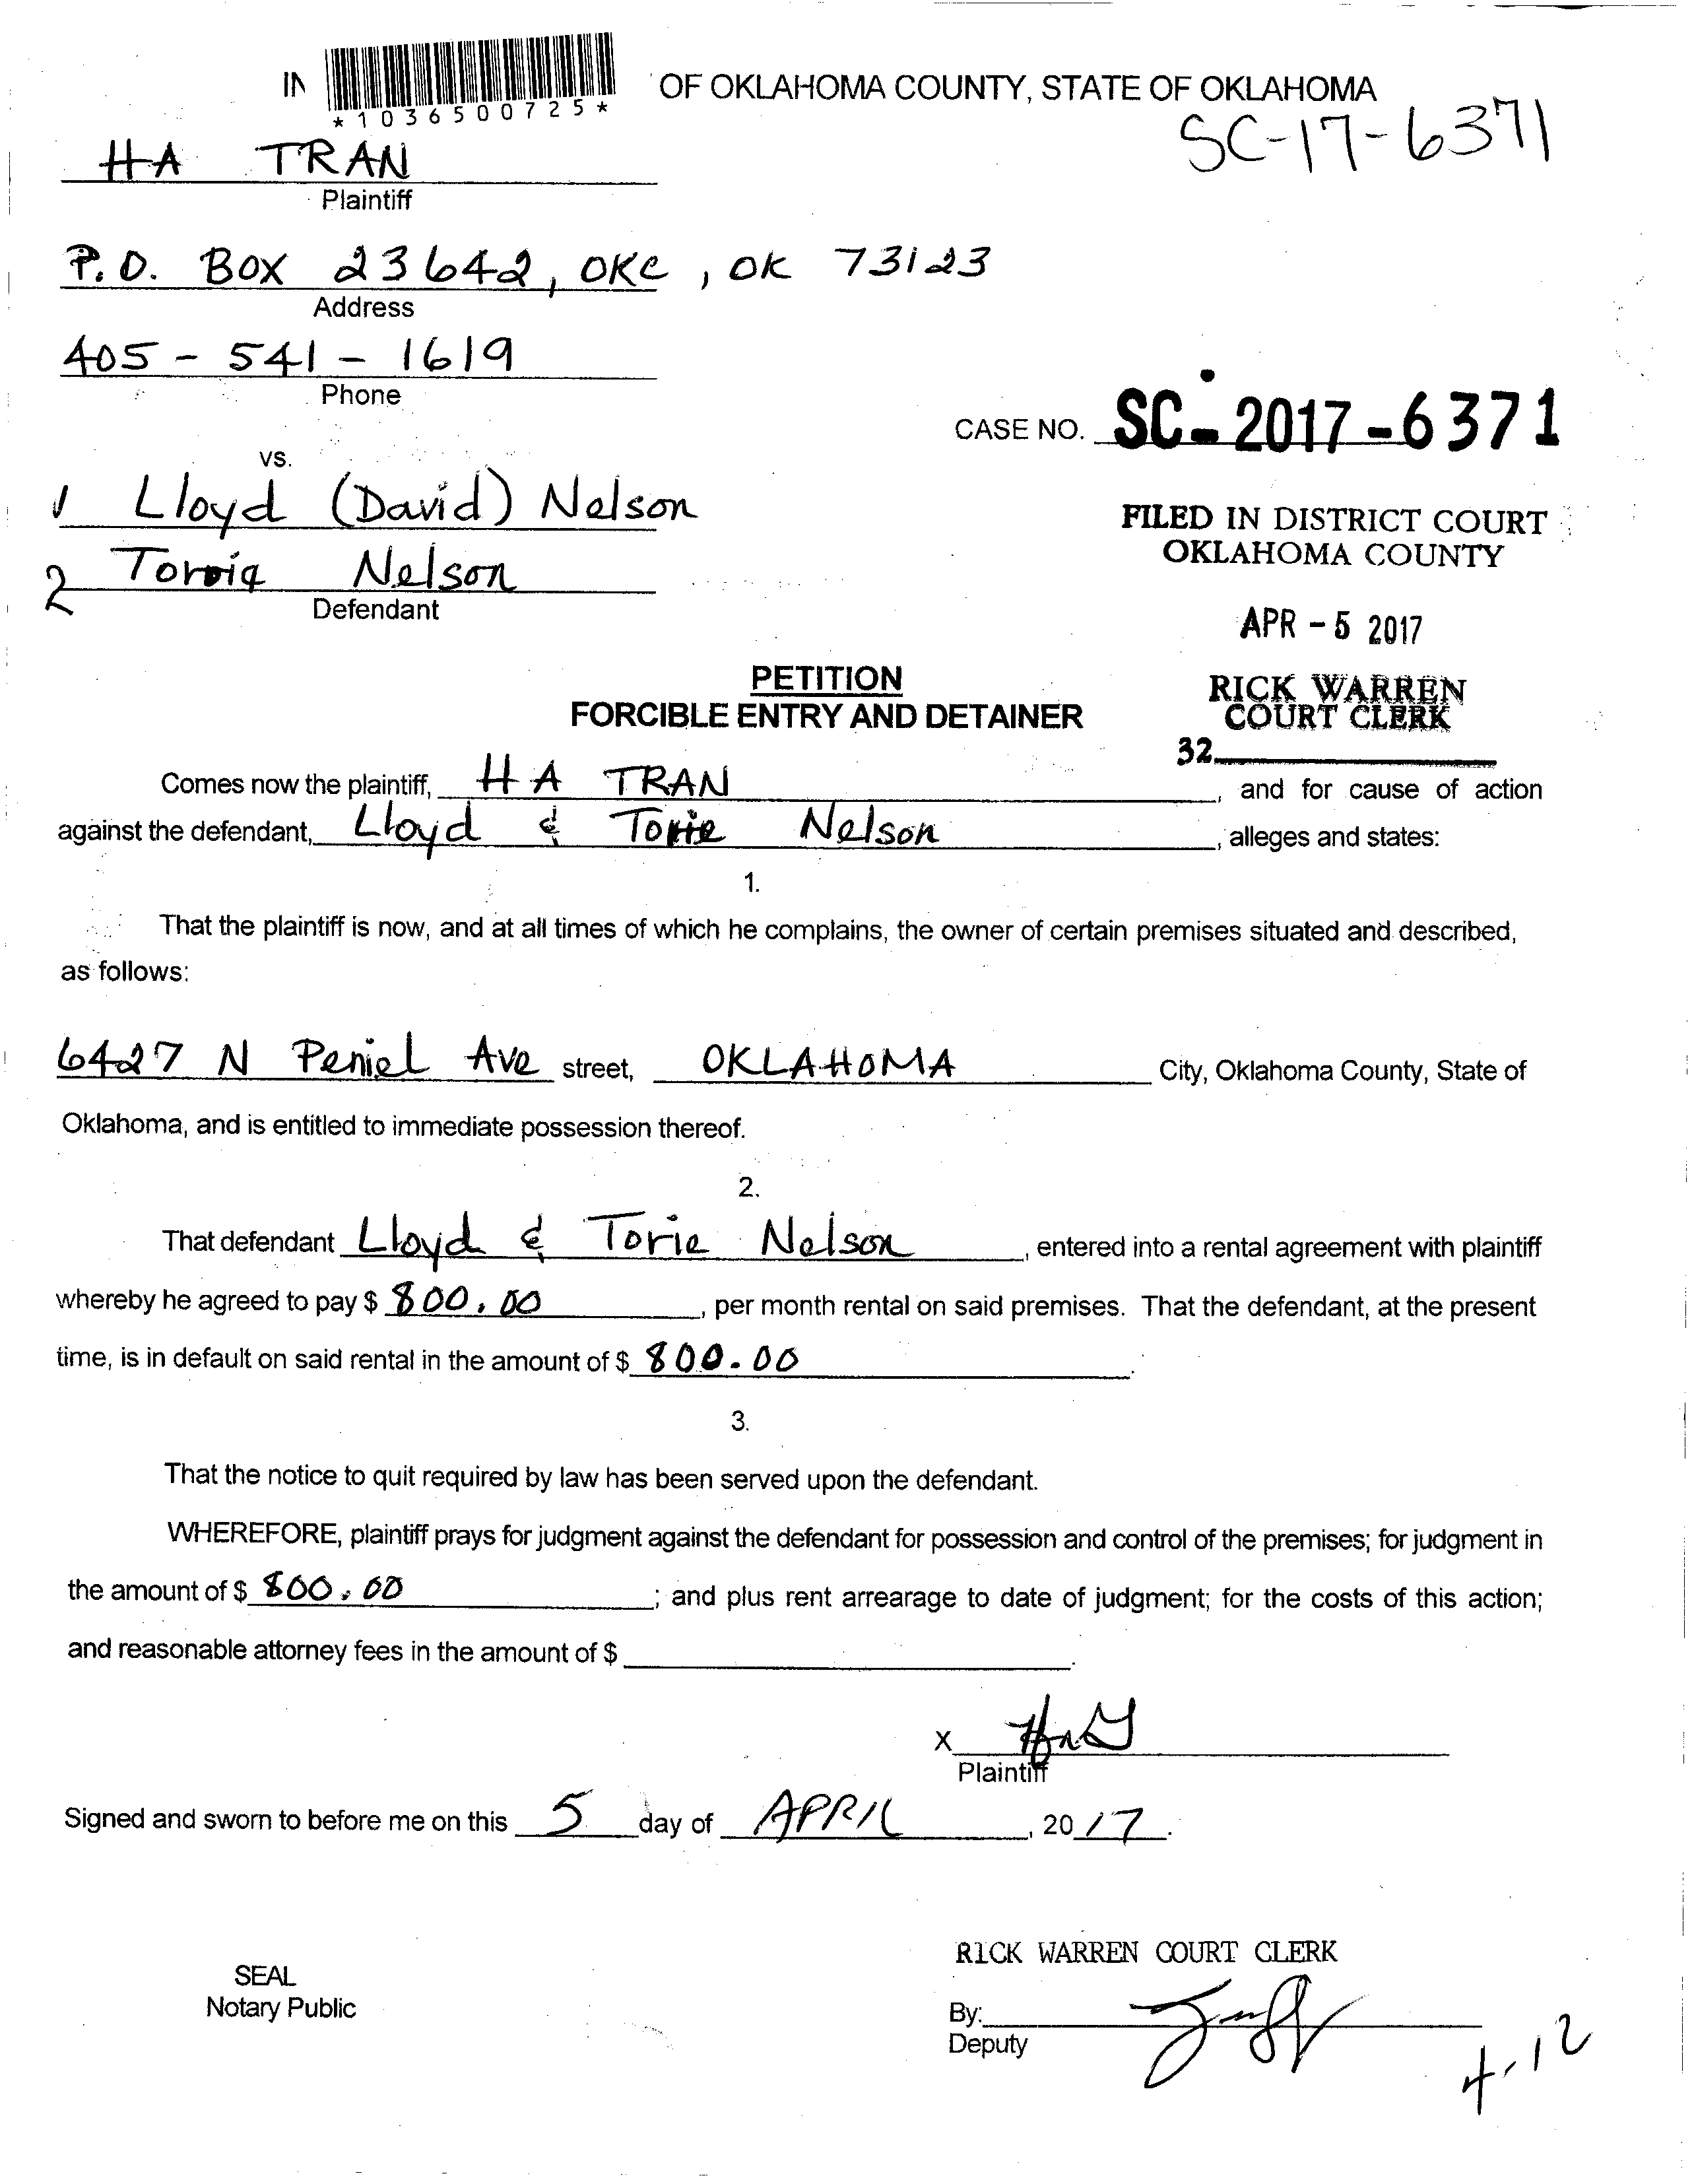 IN OF OKLAHOMA COUNTY, STATE OF OKLAHOMA
*1036500725*
SC-17-6371
HA TRAN
Plaintiff
P.O. BOX 23642, OKC, OK 73123
Address
405-541-1619
Phone
CASE NO. SC-2017-6371
vs.
1 Lloyd (David) Nelson
FILED IN DISTRICT COURT
OKLAHOMA COUNTY
2 Nelson
Defendant
APR - 5 2017
PETITION
FORCIBLE ENTRY AND DETAINER
RICK WARREN
COURT CLERK
32
Comes now the plaintiff, HA TRAN, and for cause of action
against the defendant, Lloyd & Torie Nelson, alleges and states:
1.
That the plaintiff is now, and at all times of which he complains, the owner of certain premises situated and described,
as follows:
6427 N Peniel Ave street, OKLAHOMA City, Oklahoma County, State of
Oklahoma, and is entitled to immediate possession thereof.
2.
That defendant Lloyd & Torie Nelson, entered into a rental agreement with plaintiff
whereby he agreed to pay $ 800.00, per month rental on said premises. That the defendant, at the present
time, is in default on said rental in the amount of $ 800.00.
3.
That the notice to quit required by law has been served upon the defendant.
WHEREFORE, plaintiff prays for judgment against the defendant for possession and control of the premises; for judgment in
the amount of $ 800.00; and plus rent arrearage to date of judgment; for the costs of this action;
and reasonable attorney fees in the amount of $ .
X
Plaintiff
Signed and sworn to before me on this 5 day of APRIL, 2017.
RICK WARREN COURT CLERK
SEAL
Notary Public
By:
Deputy
4-12